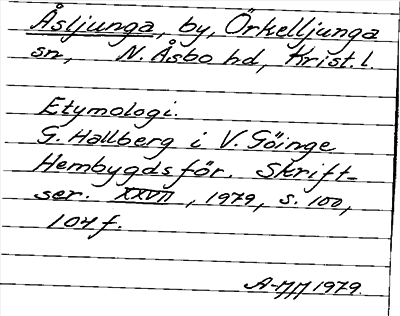 Åsljunga, by, Örkelljunga
sn, N. Åsbo hd, Krist. l.
Etymologi.
G. Hallberg i V. Göinge
Hembygdsför. Skrift-
ser. XXVII, 1979, s. 100,
104 f.
1979.